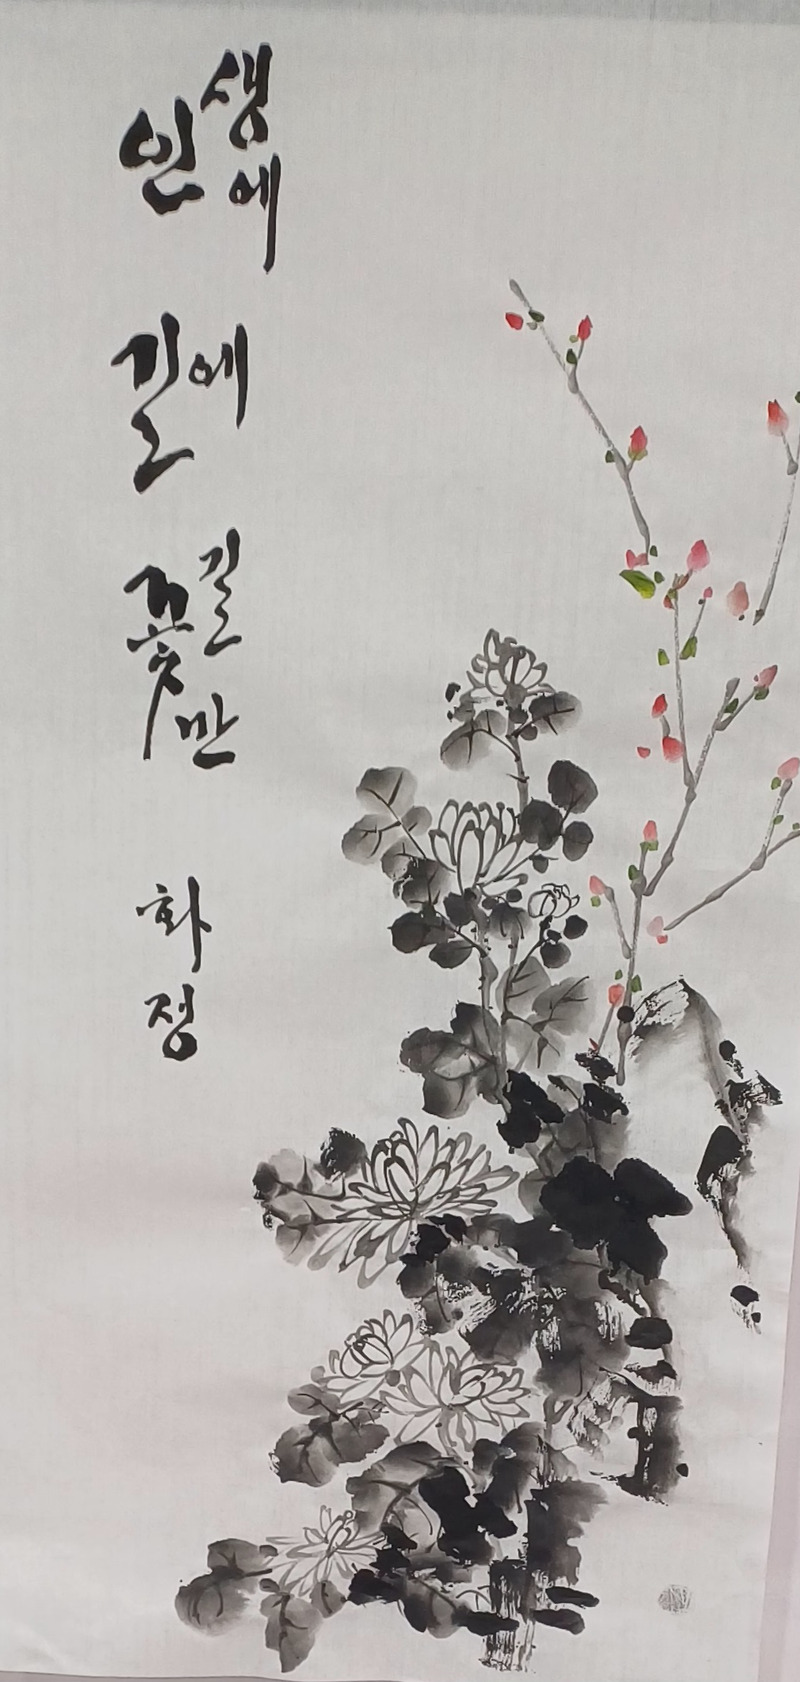 인생에
길에
꽃길만
화정